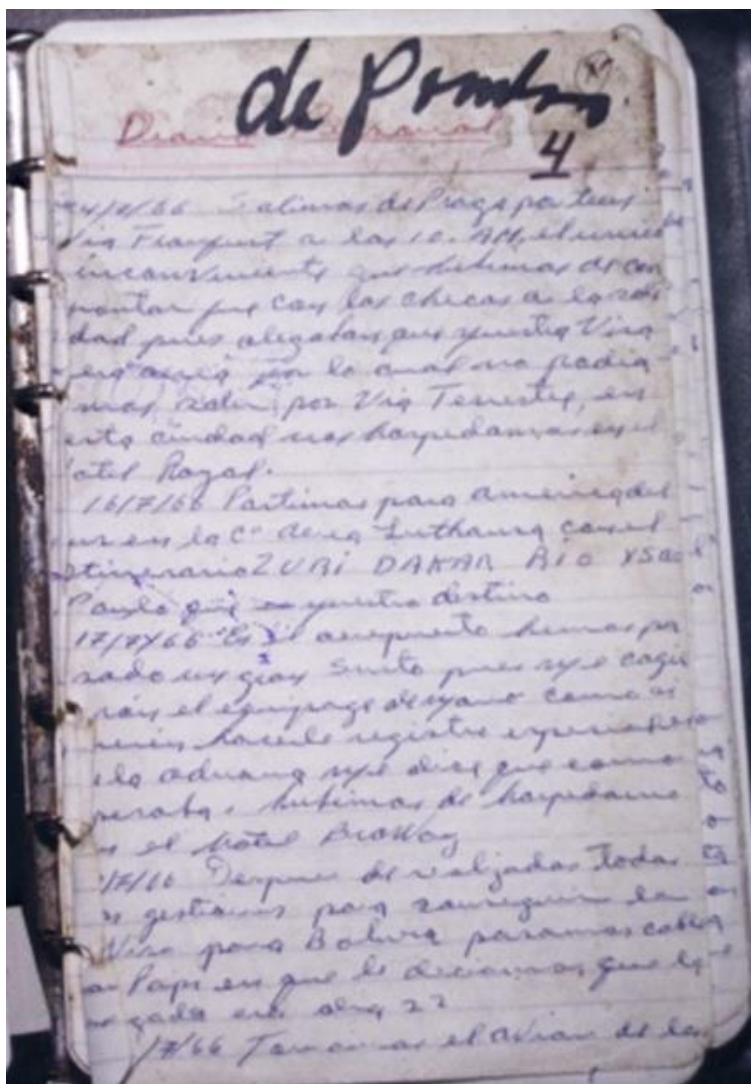 de Pombo
Diario Personal
4
14/7/66 Salimos de Praga por tren
Via Franfurt a las 10. AM, el unico
inconveniente que hubimos de con
frontar fue con los checos a la sali
dad pues alegaban que nuestra Visa
era aerea por lo cual no podia
mos salir por Via Terrestre, en
esta ciudad nos hospedamos en el
otel Royal.
16/7/66 Partimos para America del
sur en la Cª Aerea Lufthansa con el
itinerario ZURI DAKAR RIO Y SAO
Paulo que es nuestro destino
17/7/66 En el aeropuerto hemos pa
sado un gran Susto pues me cogie
ron el equipage de mano como si
hacerle registro
la aduana que como
hubimos de hospedarnos
n el hotel BroWay
/7/66 Despues de realizadas todas
s gestiones para conseguir la
Visa para Bolivia pasamos cable
a Papi en que le deciamos que la
egada era dia 22
/7/66 Tomamos el avion de la